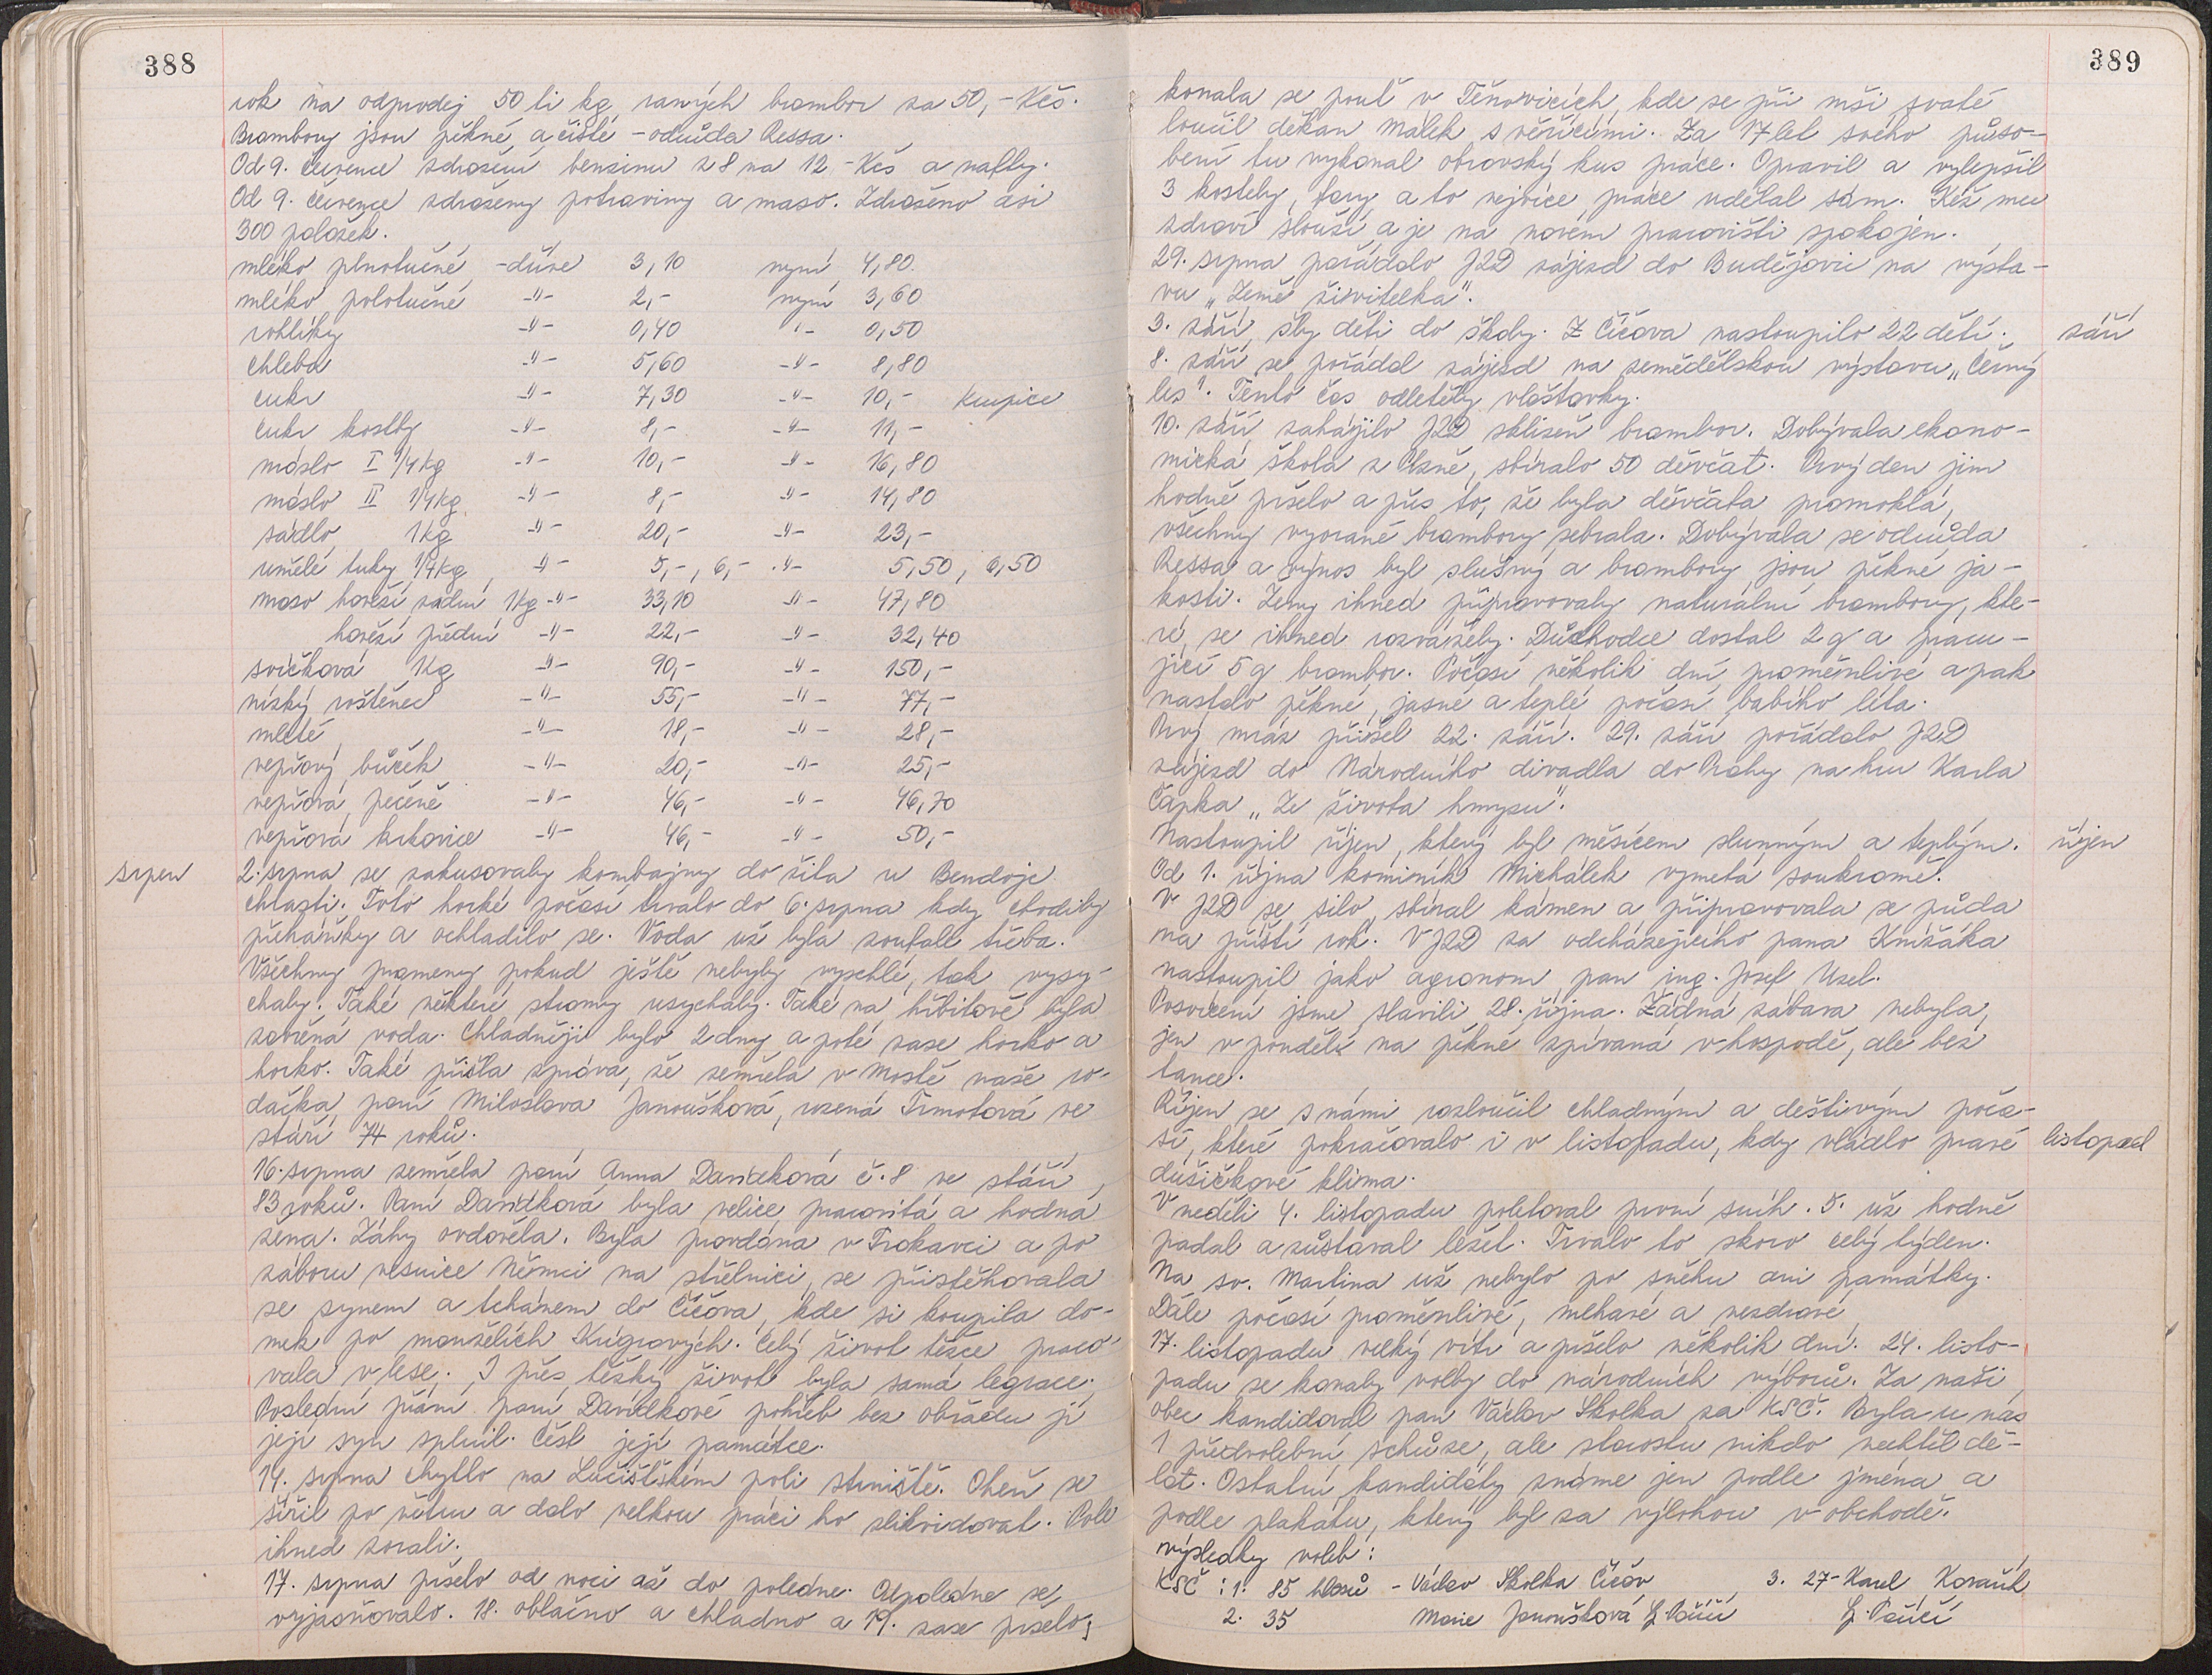 388
rok na odprodej 50 ti kg raných brambor za 50,- Kčs.
Brambory jsou pěkné, a čisté - odrůda Ressa.
Od 9. července zdražení benzinu z 8 na 12,- Kčs a nafty.
Od 9. července zdraženy potraviny a maso. Zdraženo asi
300 položek.
mléko plnotučné - dříve 3,10 nyní 4,80.
mléko polotučné -"- 2,- nyní 3,60
rohlíky -"- 0,40 "- 0,50
chleba -"- 5,60 -"- 8,80
cukr -"- 7,30 -"- 10,- krupice
cukr kostky -"- 8,- -"- 11,-
máslo I 1/4 kg -"- 10,- -"- 16,80
máslo II 1/4 kg -"- 8,- -"- 14,80
sádlo 1kg -"- 20,- -"- 23,-
umělé tuky 1/4kg -"- 5,-, 6,- -"- 5,50, 6,50
maso hovězí zadní 1kg -"- 33,10 -"- 47,80
hovězí přední -"- 22,- -"- 32,40
svíčková 1kg -"- 90,- -"- 150,-
nízký roštěnec -"- 55,- -"- 77,-
mleté -"- 18,- -"- 28,-
vepřový bůček -"- 20,- -"- 25,-
vepřová pečeně -"- 46,- -"- 46,70
vepřová krkovice -"- 46,- -"- 50,-
srpen
2. srpna se zakusovaly kombajny do žita u Bendoje
chlazti. Toto horké počasí trvalo do 6. srpna kdy chodily
přeháňky a ochladilo se. Voda už byla zoufale třeba.
Všechny prameny, pokud ještě nebyly vyschlé, tak vysy-
chaly. Také některé stromy usychaly. Také na hřbitově byla
zavřená voda. Chladněji bylo 2 dny a poté zase horko a
horko. Také přišla zpráva, že zemřela v Mostě naše ro-
dačka, paní Miloslava Janoušková, rozená Trmotová ve
stáří 74 roků.
16. srpna zemřela paní Anna Davídková č. 8 ve stáří
83 roků. Paní Davídková byla velice pracovitá a hodná
žena. Záhy ovdověla. Byla provdána v Trokavci a po
záboru vesnice Němci na střelnici, se přistěhovala
se synem a tchánem do Číčova, kde si koupila do-
mek po manželích Krúgrových. Celý život těžce praco-
vala v lese. I přes těžký život byla samá legrace.
Poslední přání paní Davídkové pohřeb bez obřadu jí
její syn splnil. Čest její památce.
14. srpna chytlo na Lučištském poli strniště. Oheň se
šířil po větru a dalo velkou práci ho zlikvidovat. Pole
ihned zorali.
17. srpna pršelo od noci až do poledne. Odpoledne se
vyjasňovalo. 18. oblačno a chladno a 19. zase pršelo,
389
konala se pouť v Těnovicích, kde se při mši svaté
loučil děkan Málek s věřícími. Za 17 let svého půso-
bení tu vykonal obrovský kus práce. Opravil a vylepšil
3 kostely, fary a to nejvíce práce udělal sám. Kéž mu
zdraví slouží a je na novém pracovišti spokojen.
29. srpna pořádalo JZD zájezd do Budějovic na výsta-
vu „Země živitelka".
3. září šly děti do školy. Z Číčova nastoupilo 22 dětí.
září
8. září se pořádal zájezd na zemědělskou výstavu „Černý
les". Tento čas odletěly vlaštovky.
10. září zahájilo JZD sklizeň brambor. Dobývala ekono-
mická škola z Plzně, sbíralo 50 děvčat. Prvý den jim
hodně pršelo a přes to, že byla děvčata promoklá,
všechny vyorané brambory sebrala. Dobývala se odrůda
Ressa a výnos byl slušný a brambory jsou pěkné ja-
kosti. Ženy ihned připravovaly naturální brambory, kte-
ré se ihned rozvážely. Důchodce dostal 2 q a pracu-
jící 5 q brambor. Počasí několik dní proměnlivé a pak
nastalo pěkné, jasné a teplé počasí babího léta.
Prvý mráz přišel 22. září. 29. září pořádalo JZD
zájezd do Národního divadla do Prahy na hru Karla
Čapka „Ze života hmyzu".
Nastoupil říjen, který byl měsícem slunným a teplým.
říjen
Od 1. října kominík Michálek vymetá soukromě.
V JZD se silo, sbíral kámen a připravovala se půda
na příští rok. V JZD za odcházejícího pana Knížáka
nastoupil jako agronom, pan ing. Josef Uzel.
Posvícení jsme slavili 28. října. Žádná zábava nebyla,
jen v pondělí na pěkné zpívaná v hospodě, ale bez
tance.
Říjen se s námi rozloučil chladným a deštivým poča-
sí, které pokračovalo i v listopadu, kdy vládlo pravé
listopad
dušičkové klima.
V neděli 4. listopadu poletoval první sníh. 5. už hodně
padal a zůstával ležet. Trvalo to skoro celý týden.
Na sv. Martina už nebylo po sněhu ani památky.
Dále počasí proměnlivé, mlhavé a nezdravé
17. listopadu velký vítr a pršelo několik dní. 24. listo-
padu se konaly volby do národních výborů. Za naši
obec kandidoval pan Václav Skolka za KSČ. Byla u nás
1 předvolební schůze, ale starostu nikdo nechtěl dě-
lat. Ostatní kandidáty známe jen podle jména a
podle plakátu, který byl za výlohou v obchodě.
výsledky voleb:
KSČ : 1. 85 hlasů - Václav Skolka Číčov, 3. 27 - Karel Kovařík
2. 35 Marie Janoušková H. Poříčí H. Poříčí